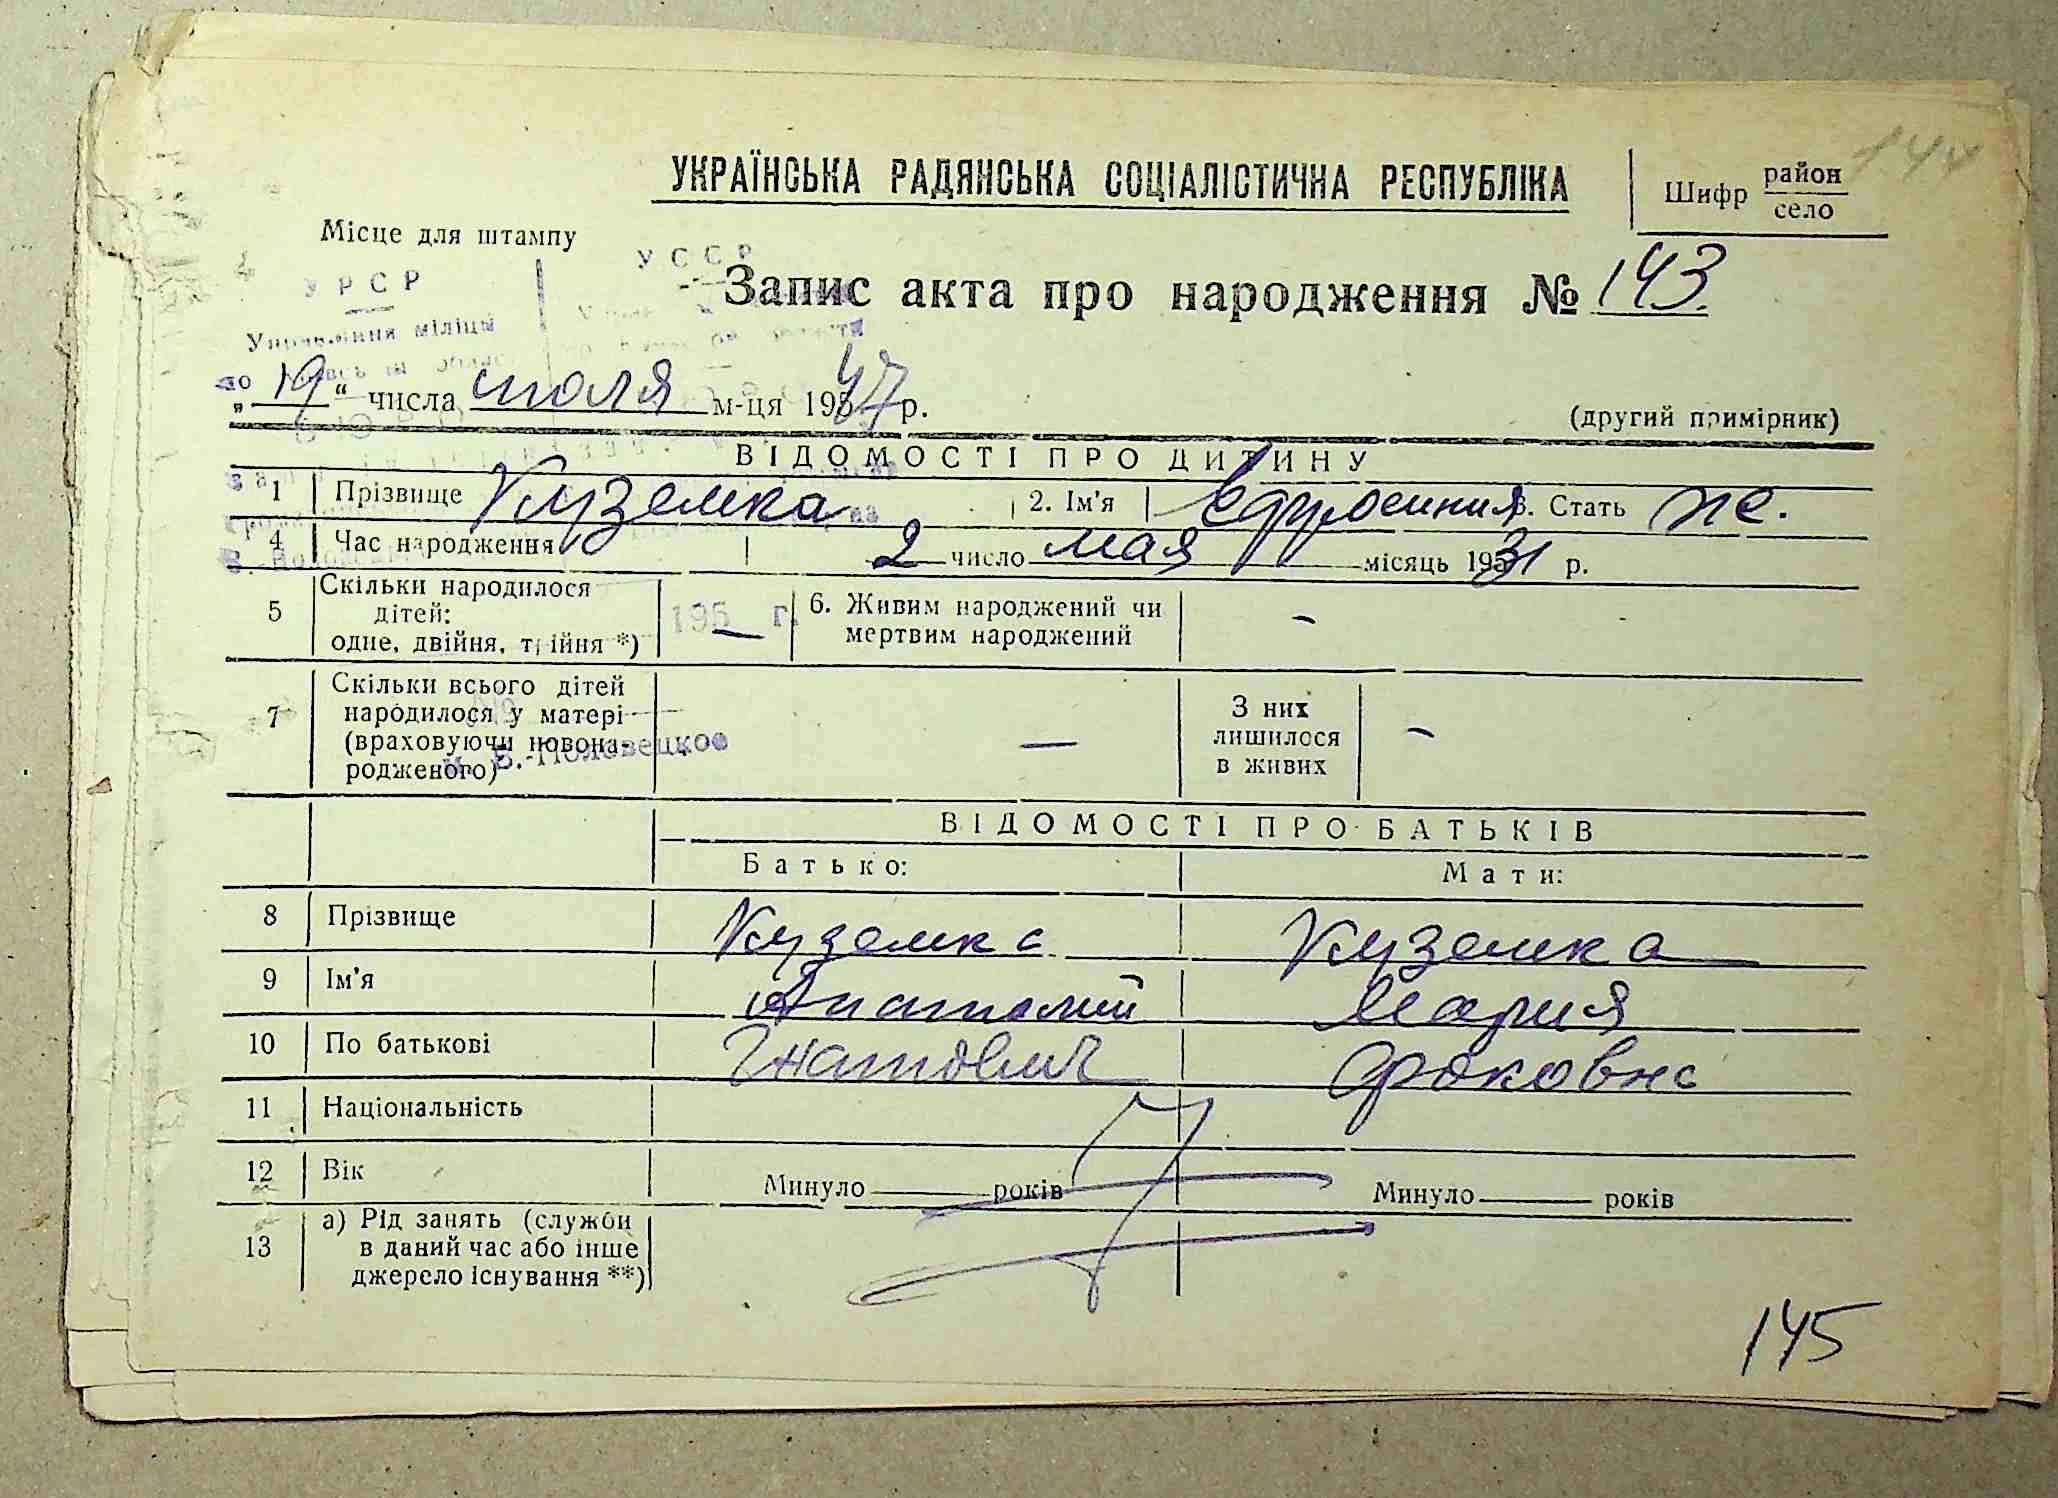 144
УКРАЇНСЬКА РАДЯНСЬКА СОЦІАЛІСТИЧНА РЕСПУБЛІКА
Шифр район село
Місце для штампу
УРСР УССР
Запис акта про народження № 143
Управління міліції
"19" числа июля м-ця 1947 р.
(другий примірник)
ВІДОМОСТІ ПРО ДИТИНУ
1 Прізвище Куземка 2. Ім'я Ефросиния 3. Стать ж.
4 Час народження 2 число мая місяць 1931 р.
5 Скільки народилося дітей: одне, двійня, трійня *) – 195 г. 6. Живим народжений чи мертвим народжений –
7 Скільки всього дітей народилося у матері (враховуючи новонародженого) – З них лишилося в живих –
Б.-Половецкое
ВІДОМОСТІ ПРО БАТЬКІВ
Батько: Мати:
8 Прізвище Куземка Куземка
9 Ім'я Анатолий Мария
10 По батькові Гнатович Фоковна
11 Національність
12 Вік Минуло років Минуло років
13 а) Рід занять (служби в даний час або інше джерело існування **)
145